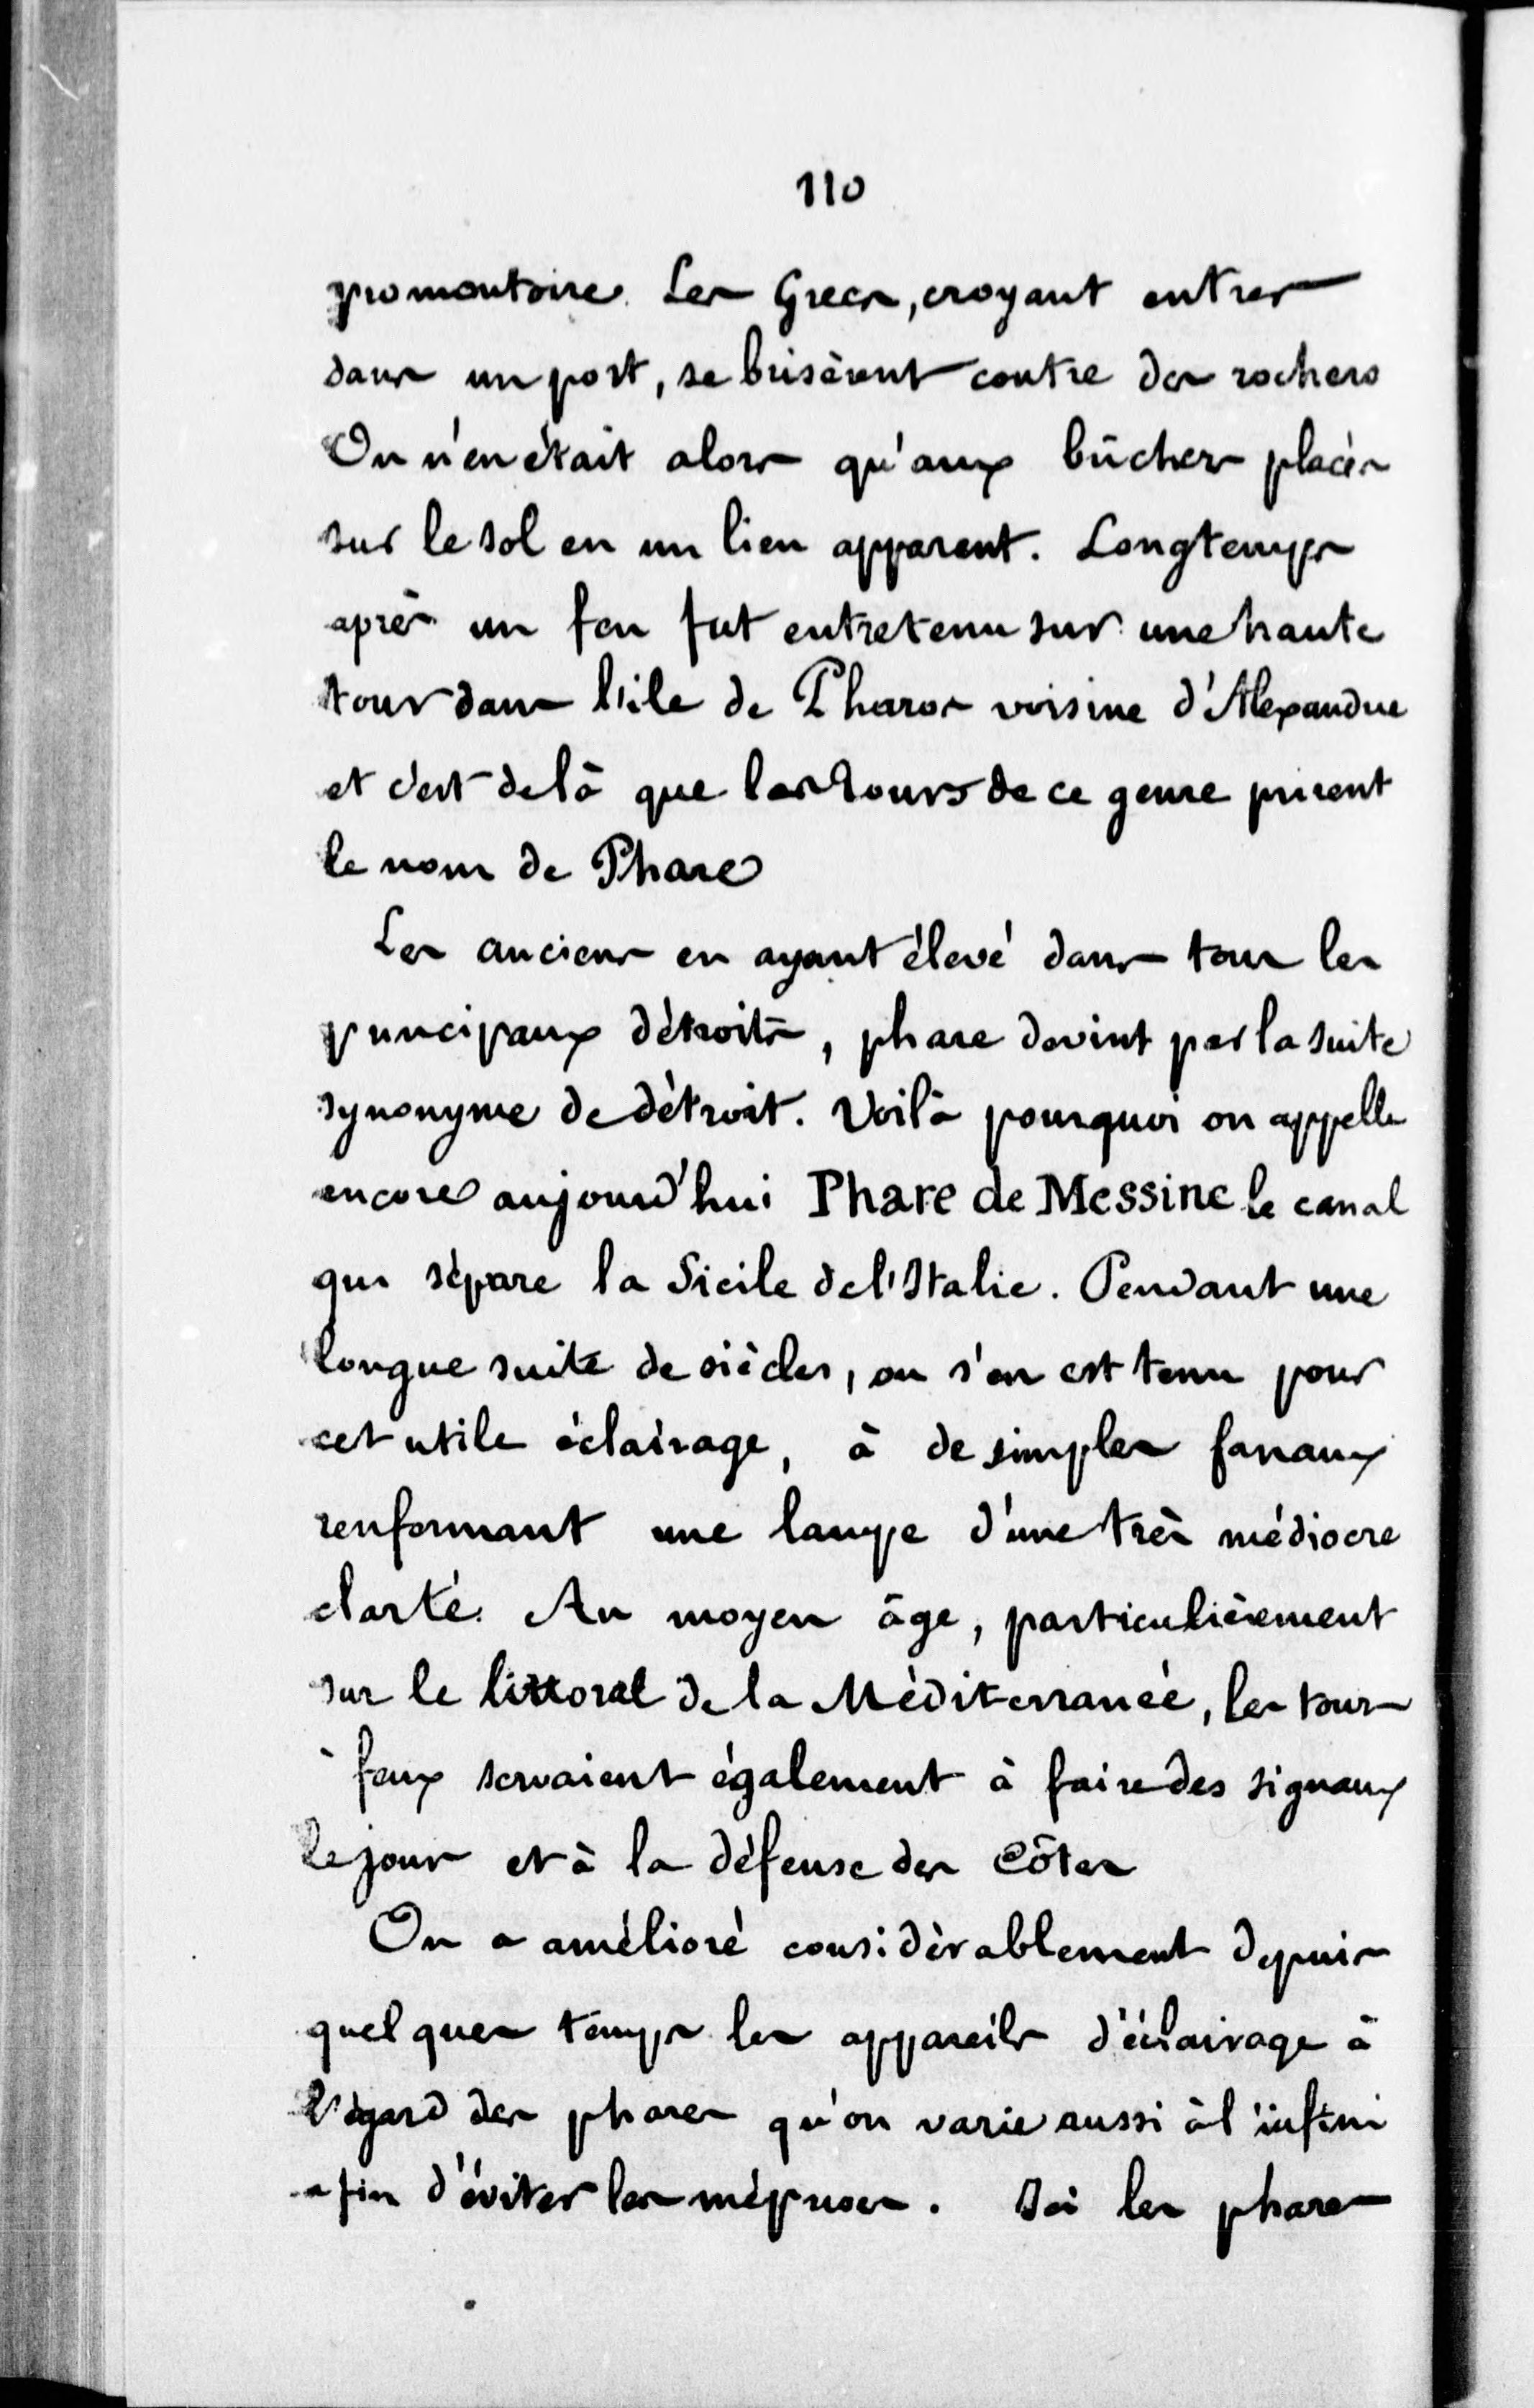 110
promontoire. Les Grecs, croyant entrer
dans un port, se brisèrent contre des rochers
On n'en était alors qu'aux bûchers placés
sur le sol en un lieu apparent. Longtemps
après un feu fut entretenu sur une haute
tour dans l'île de Pharos voisine d'Alexandrie
et c'est de là que les tours de ce genre prirent
le nom de Phare
Les anciens en ayant élevé dans tous les
principaux détroits, phare devint par la suite
synonyme de détroit. Voilà pourquoi on appelle
encore aujourd'hui Phare de Messine le canal
qui sépare la Sicile de l'Italie. Pendant une
longue suite de siècles, on s'en est tenu pour
cet utile éclairage, à de simples fanaux
renfermant une lampe d'une très médiocre
clarté. Au moyen âge, particulièrement
sur le littoral de la Méditerranée, les tours
à feux servaient également à faire des signaux
le jour et à la défense des Côtes
On a amélioré considérablement depuis
quelques temps les appareils d'éclairage à
l'égard des phares qu'on varie aussi à l'infini
afin d'éviter les méprises. Ici les phares